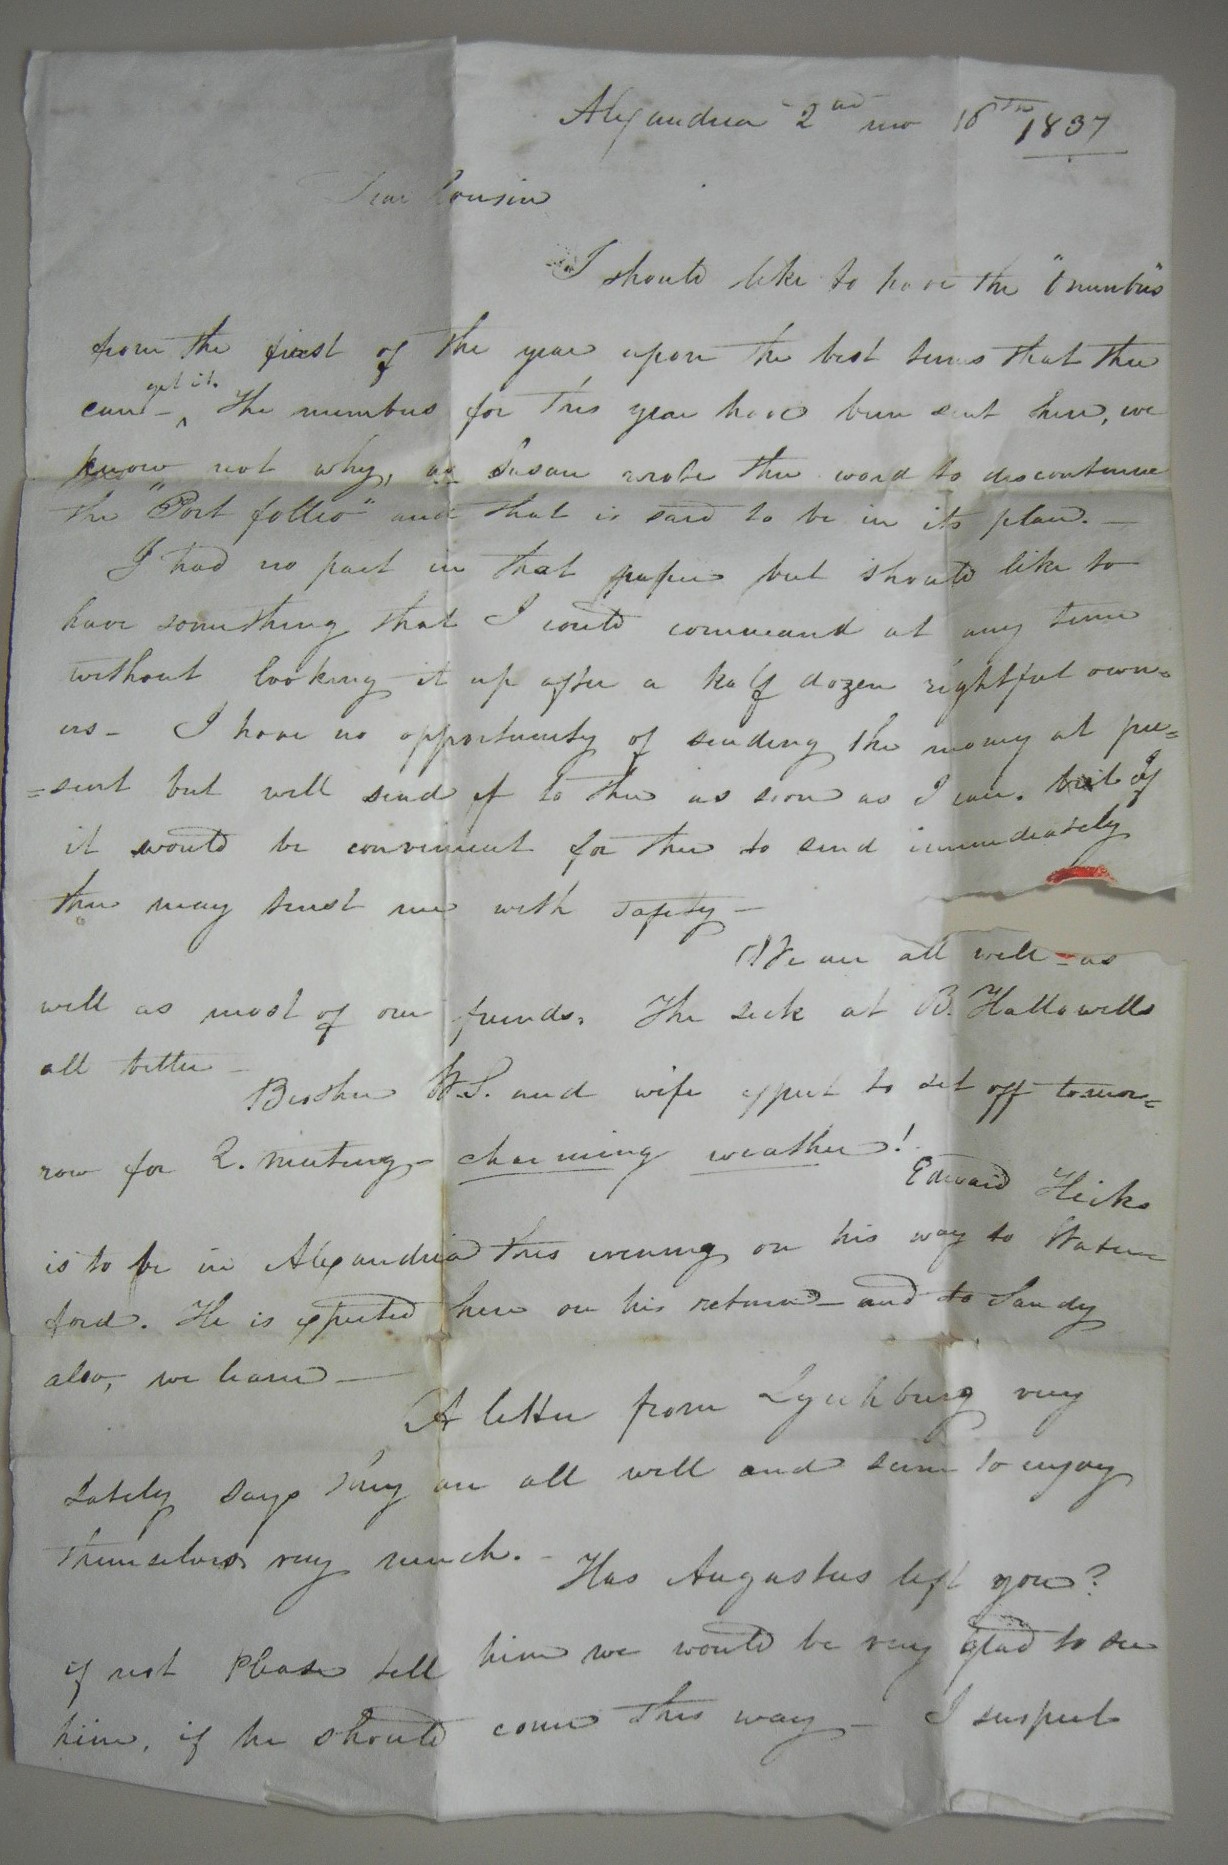 Alexandria 2nd mo 16th 1837
Dear Cousin
I should like to have the "Omnibus"
from the first of the year upon the best terms that thee
can – get it. The numbers for this year have been sent here, we
know not why, as Susan wrote thee word to discontinue
the "Port folio" and that is said to be in its place. —
I had no part in that paper but should like to
have something that I could command at any time
without looking it up after a half dozen rightful own=
ers – I have no opportunity of sending the money at pre=
=sent but will send it to thee as soon as I can. but If
it would be convenient for thee to send immediately
thee may trust me with safety –
We are all well – as
well as most of our friends. The sick at B. Hallowells
all better –
Brother W.S. and wife expect to set off tomor=
row for Q. meeting – charming weather!
Edward Hicks
is to be in Alexandria this evening on his way to Water
ford. He is expected here on his return – and to Sandy
also, we learn —
A letter from Lynchburg very
lately says they are all well and seem to enjoy
themselves very much. –
Has Augustus left you?
if not Please tell him we would be very glad to see
him, if he should come this way – I suspect